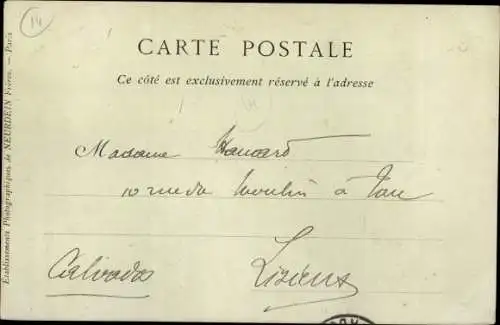 14
CARTE POSTALE
Ce côté est exclusivement réservé à l'adresse
Madame Hamard
10 rue du Moulin à Tan
Lisieux
Calvados
Etablissements Photographiques de NEURDEIN Frères. — Paris